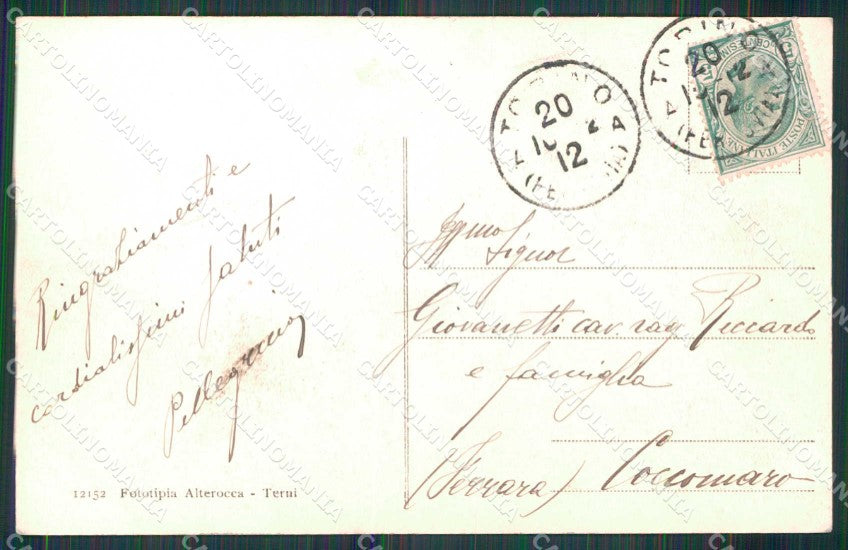 Ringraziamenti e
cordialissimi saluti
Pellegrino
12152 Fototipia Alterocca - Terni
TORINO
20
12
(FERROVIA)
TORINO
20
12
12
(FERROVIA)
POSTE ITALIANE
Illmo
Signor
Giovanetti cav. rag. Riccardo
e famiglia
(Ferrara) Coccomaro
CARTOLINOMANIA